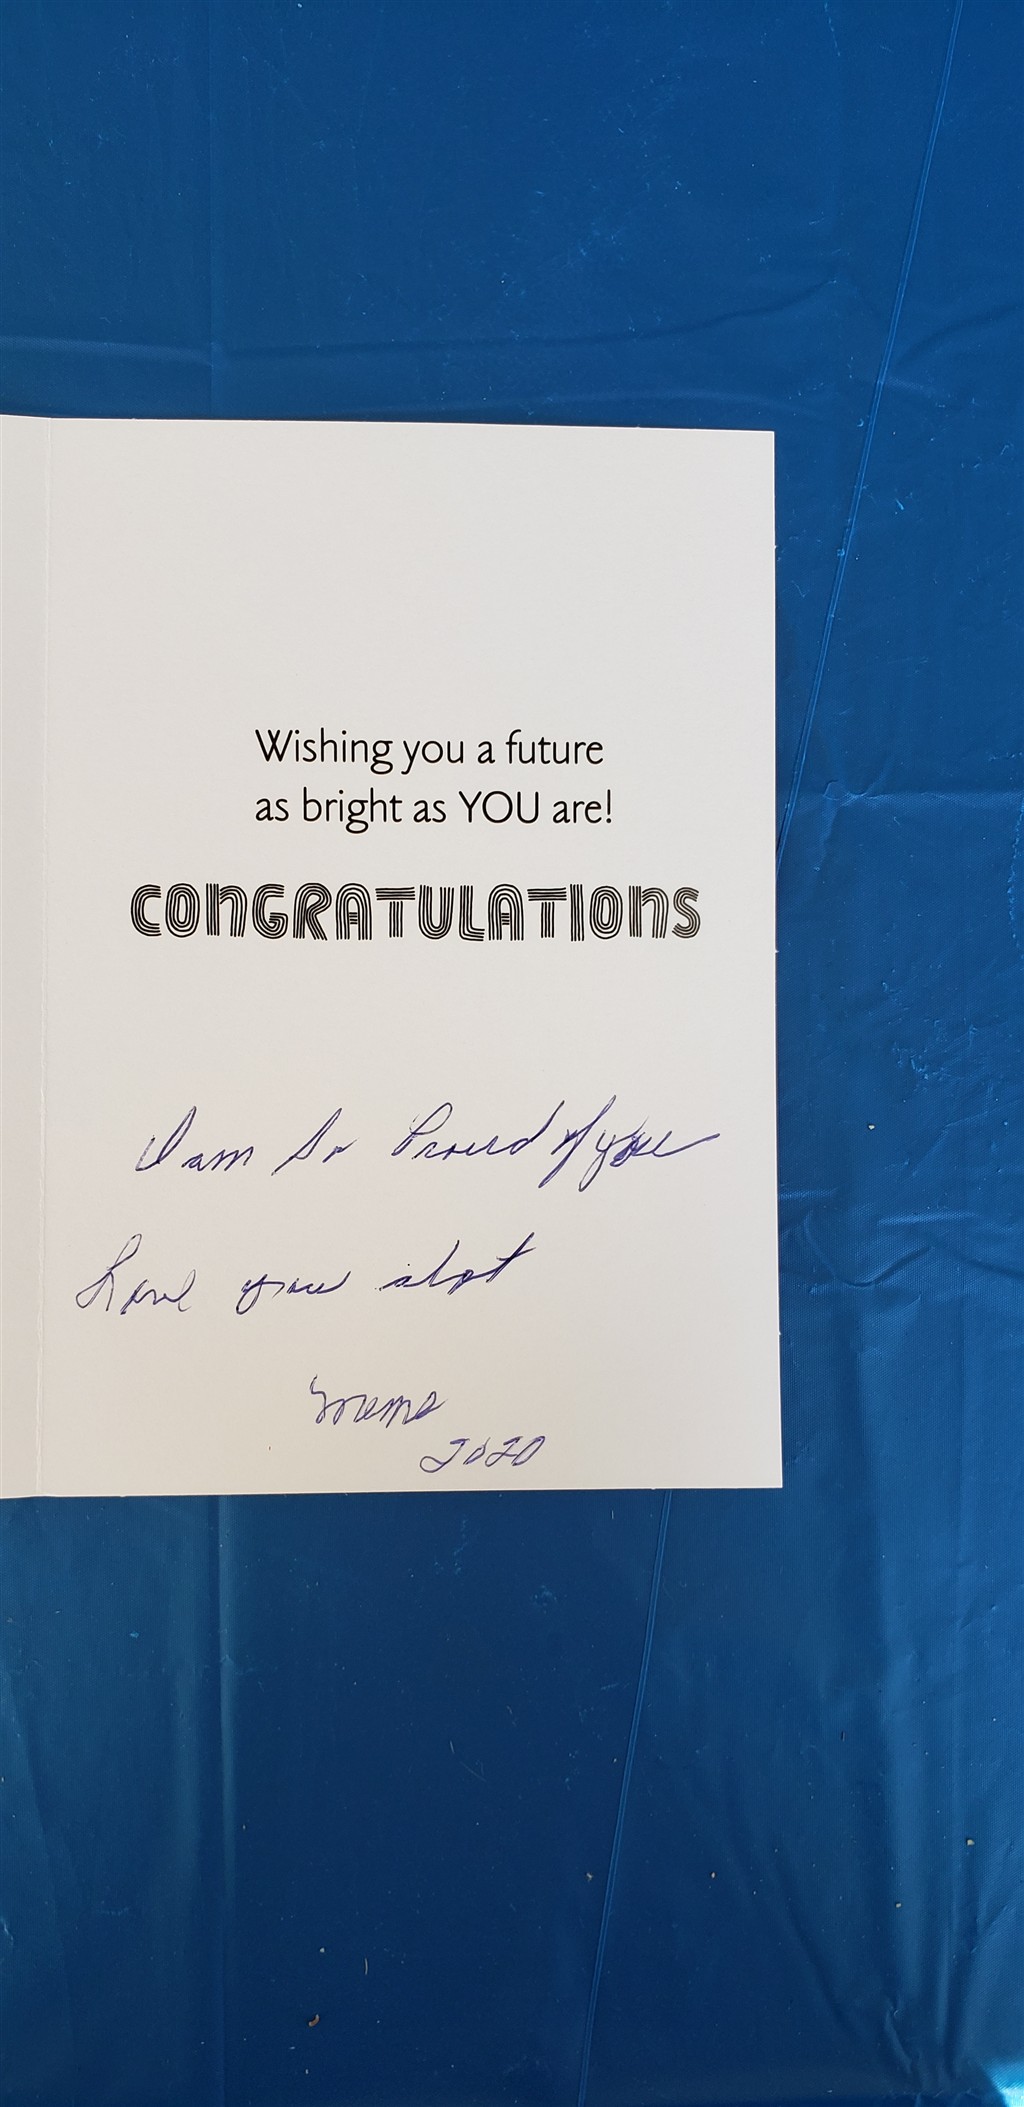 Wishing you a future
as bright as YOU are!
CONGRATULATIONS
I am So Proud of you
Love you alot
Meme
2020